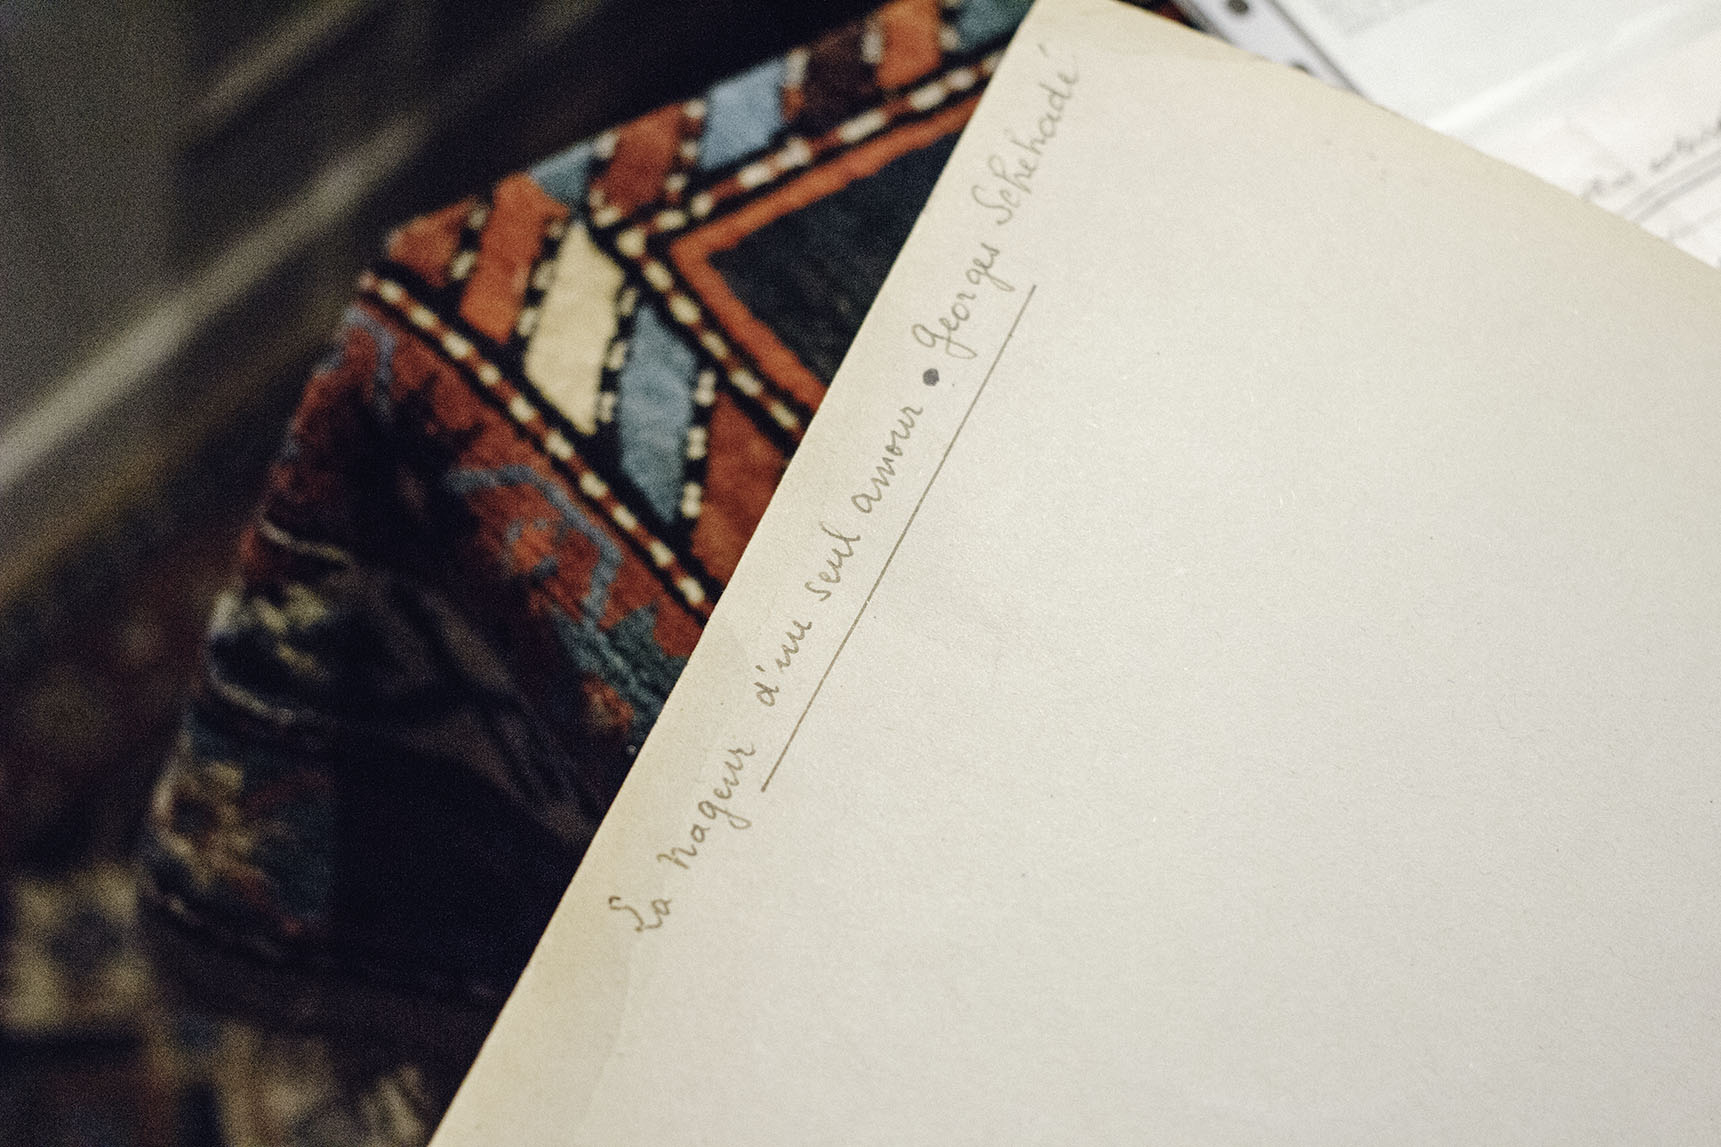 La nageur d'un seul amour • Georges Schehadé